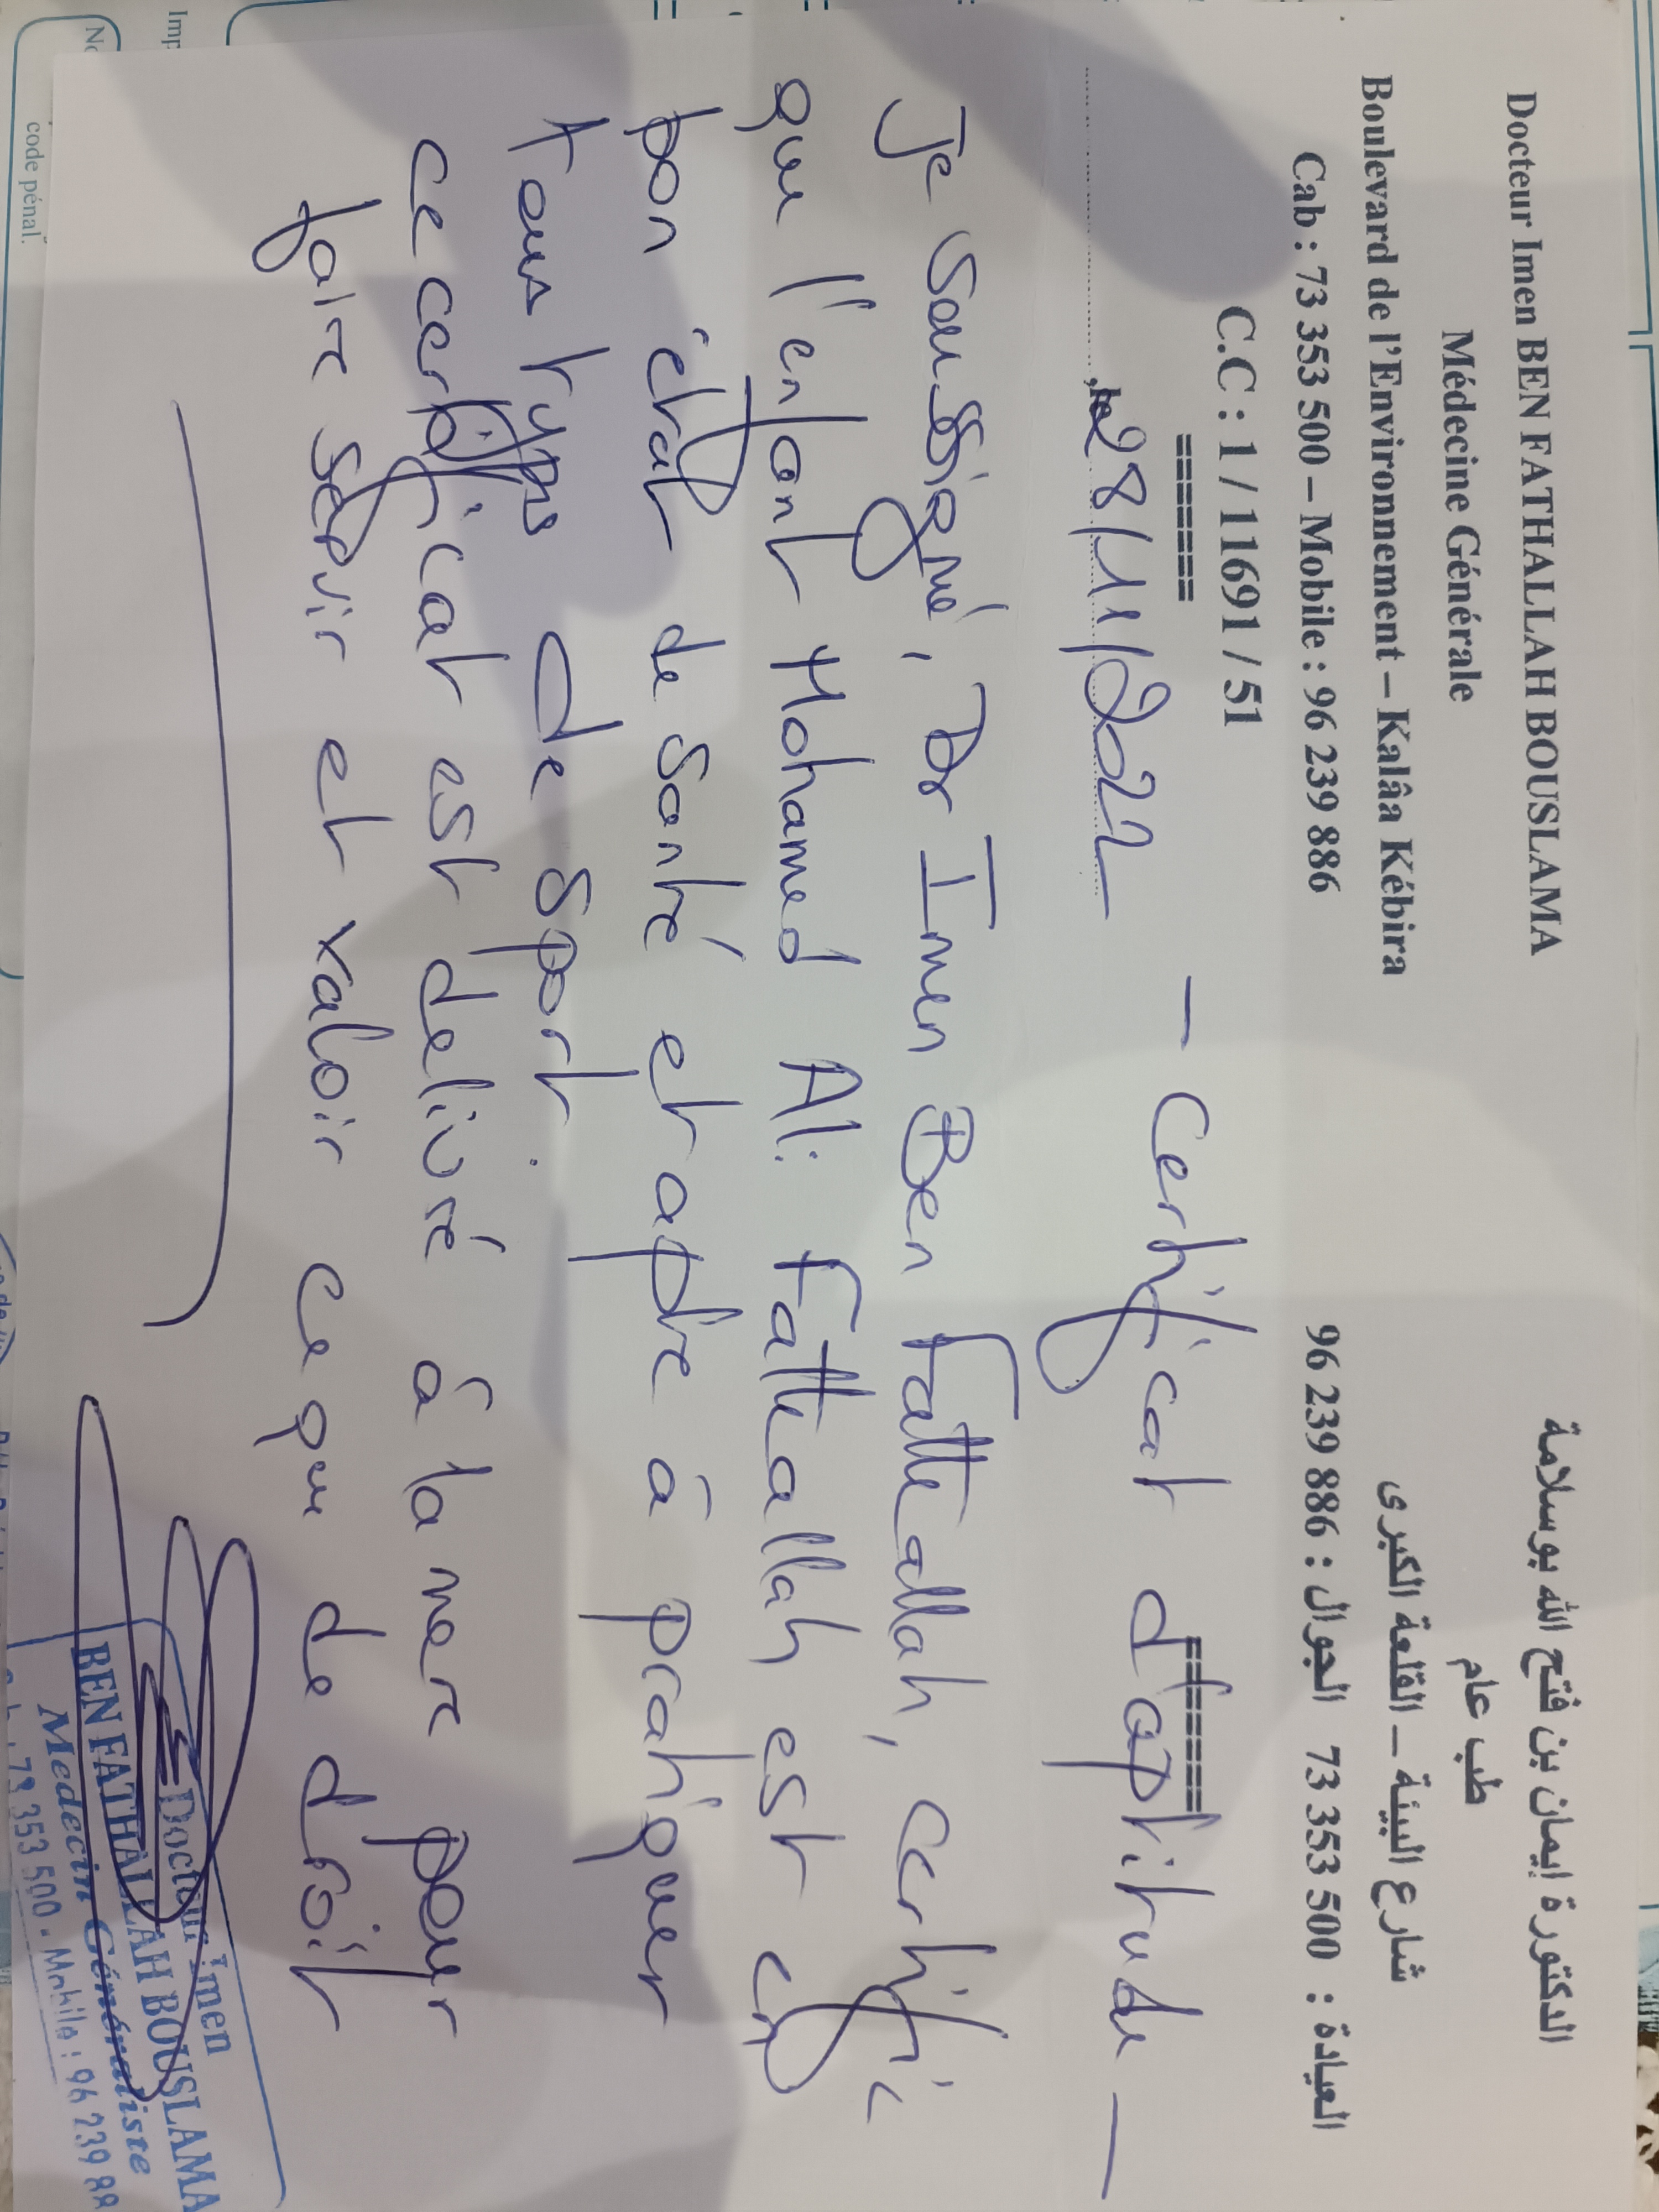 Docteur Imen BEN FATHALLAH BOUSLAMA
Médecine Générale
Boulevard de l'Environnement – Kalâa Kébira
Cab : 73 353 500 – Mobile : 96 239 886
C.C : 1 / 11691 / 51
======
الدكتورة إيمان بن فتح الله بوسلامة
طب عام
شارع البيئة – القلعة الكبرى
العيادة : 73 353 500 الجوال : 96 239 886
======
, le 28/11/2022
— Certificat d'aptitude —
Je soussigné, Dr Imen Ben Fatteallah, certifie
que l'enfant Mohamed Ali Fatteallah est en
bon état de santé et apte à pratiquer
tous types de sport.
ce certificat est delivré à la mere pour
faire servir et valoir ce que de droit
Docteur Imen
BEN FATHALLAH BOUSLAMA
Medecin Généraliste
73 353 500 - Mobile : 96 239 88
Imp
No
code pénal.